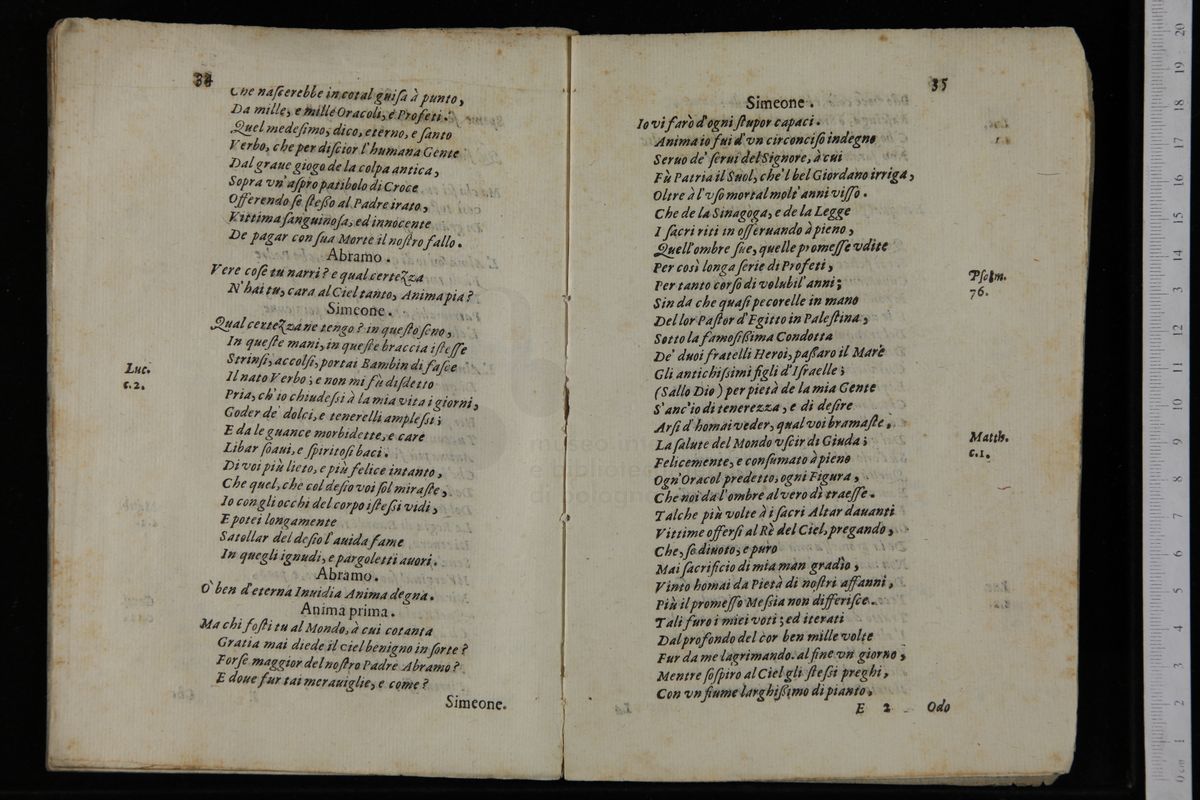 34
Che naſcerebbe in cotal guiſa à punto,
Da mille, e mille Oracoli, e Profeti.
Quel medeſimo, dico, eterno, e ſanto
Verbo, che per diſcior l'humana Gente
Dal graue giogo de la colpa antica,
Sopra vn'aſpro patibolo di Croce
Offerendo ſe ſteßo al Padre irato,
Vittima ſanguinoſa, ed innocente
De pagar con ſua Morte il noſtro fallo.
Abramo.
Vere coſe tu narri? e qual certezza
N'hai tu, cara al Ciel tanto, Anima pia?
Simeone.
Qual certezza ne tengo? in queſto ſeno,
In queſte mani, in queſte braccia iſteſſe
Luc.
c.2.
Strinſi, accolſi, portai Bambin di faſce
Il nato Verbo; e non mi fù diſdetto
Pria, ch'io chiudeſsi à la mia vita i giorni,
Goder de' dolci, e tenerelli ampleſsi;
E da le guance morbidette, e care
Libar ſoaui, e ſpiritoſi baci.
Di voi più lieto, e più felice intanto,
Che quel, che col deſio voi ſol miraſte,
Io con gli occhi del corpo iſteſsi vidi,
E potei longamente
Satollar del deſio l'auida fame
In quegli ignudi, e pargoletti auori.
Abramo.
O' ben d'eterna Inuidia Anima degna.
Anima prima.
Ma chi foſti tu al Mondo, à cui cotanta
Gratia mai diede il ciel benigno in ſorte?
Forſe maggior del noſtro Padre Abramo?
E doue fur tai merauiglie, e come?
Simeone.
35
Simeone.
Io vi farò d'ogni ſtupor capaci.
Anima io fui d'vn circonciſo indegno
Seruo de' ſerui del Signore, à cui
Fù Patria il Suol, che'l bel Giordano irriga,
Oltre à l'vſo mortal molt'anni viſſo.
Che de la Sinagoga, e de la Legge
I ſacri riti in oſſeruando à pieno,
Quell'ombre ſue, quelle promeſſe vdite
Per così longa ſerie di Profeti,
Per tanto corſo di volubil'anni;
Pſalm.
76.
Sin da che quaſi pecorelle in mano
Del lor Paſtor d'Egitto in Paleſtina,
Sotto la famoſißima Condotta
De' duoi fratelli Heroi, paßaro il Mare
Gli antichiſsimi figli d'Iſraelle;
(Sallo Dio) per pietà de la mia Gente
S'anc'io di tenerezza, e di deſire
Arſi d'homai veder, qual voi bramaſte,
Matth.
c.1.
La ſalute del Mondo vſcir di Giuda;
Felicemente, e conſumato à pieno
Ogn'Oracol predetto, ogni Figura,
Che noi da l'ombre al vero dì traeſſe.
Talche più volte à i ſacri Altar dauanti
Vittime offerſi al Rè del Ciel, pregando,
Che, ſe diuoto, e puro
Mai ſacrificio di mia man gradìo,
Vinto homai da Pietà di noſtri affanni,
Più il promeſſo Meſsia non differiſce.
Tali furo i miei voti; ed iterati
Dal profondo del cor ben mille volte
Fur da me lagrimando. al fine vn giorno,
Mentre ſoſpiro al Ciel gli ſteſsi preghi,
Con vn fiume larghißimo di pianto,
E 2 Odo